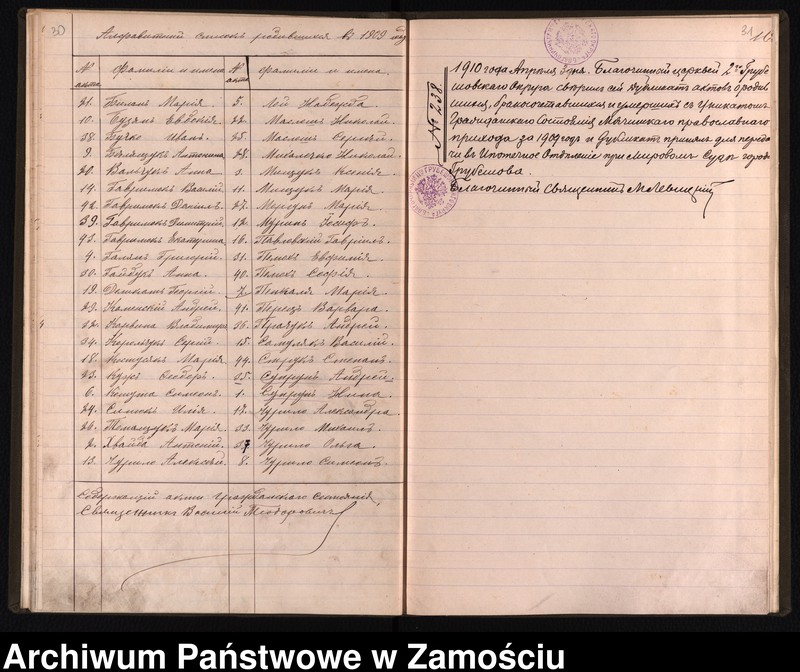 30
Алфавитный списокъ родившихся въ 1909 году
№ акта
Фамилии и имена
№ акта
фамилии и имена.
21. Билань Мария. 5. Лой
10. Евдокия 22. Маслошъ Николай.
38. Бучко Иванъ. 25. Маслошъ Сергѣй.
9. Антонина 28. Михальчко Николай.
20. Вальчукъ Анна 3. Мищукъ Ксения.
14. Гаврилюкъ Василий 11. Мищукъ Мария.
42. Гаврилюкъ Даниилъ. 27. Мария.
39. Гаврилюкъ Димитрий. 12. Мудрикъ Iосифъ.
43. Гаврилюкъ Екатерина 16. Павловский Гавриилъ.
4. Галанъ Григорий. 31. Попекъ Евфимия.
30. Гайдукъ Анна. 40. Попекъ София.
19. Георгий. 7. Пепкаля Мария.
29. Каменский Андрей. 41. Перецъ Варвара.
32. Владимиръ 36. Прачукъ Андрей.
34. Сергий. 15. Самулякъ Василий.
18. Мария 44. Струкъ Степанъ.
23. Куръ Ѳеодоръ. 35. Супрунъ Андрей.
6. Симеонъ. 1. Супрунъ Нина.
24. Илия. 17. Чурило Александра
26. Томащукъ Мария. 33. Чурило Михаилъ.
2. Хвайда Антоний. 37 Чурило Ольга.
13. Чурило Алексѣй. 8. Чурило Симеонъ.
Содержащий акты гражданского состояния,
Священникъ Василий Теодоровичъ
31
16
№ 238.
1910 года Апрѣля дня. Благочинный церквей 2го Грубе-
шовскаго Округа сверилъ сей дубликатъ актовъ о родив-
шихся, бракосочетавшихся и умершихъ съ Уникатомъ
Гражданскаго Состояния православнаго
прихода за 1909 годъ и Дубликатъ принялъ для переда-
чи въ Ипотечное Отдѣление при Мировомъ Судѣ города
Грубешова.
Благочинный Священникъ М Левицкий
Archiwum Państwowe w Zamościu